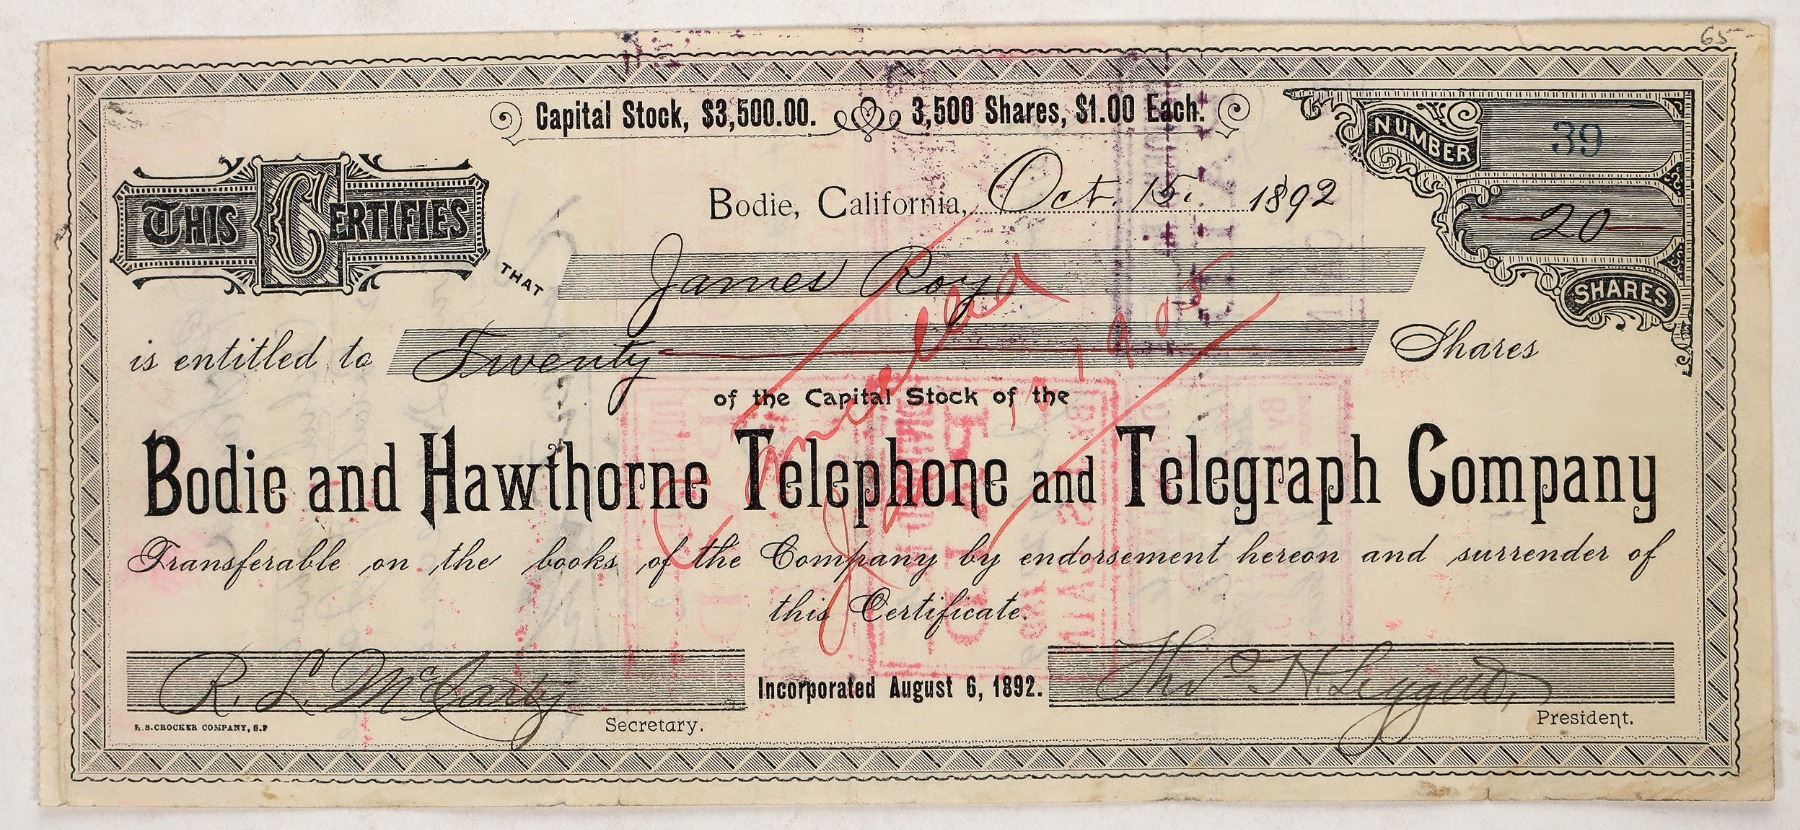 65-
Capital Stock, $3,500.00. 3,500 Shares, $1.00 Each.
NUMBER 39
Bodie, California, Oct. 15. 1892
20
SHARES
THIS CERTIFIES
THAT James Royd
is entitled to Twenty Shares
of the Capital Stock of the
Bodie and Hawthorne Telephone and Telegraph Company
Transferable on the books of the Company by endorsement hereon and surrender of
this Certificate.
Cancelled
1905
R. L. McCarty
Incorporated August 6, 1892.
Thos H. Leggett,
H. S. CROCKER COMPANY, S.F
Secretary.
President.